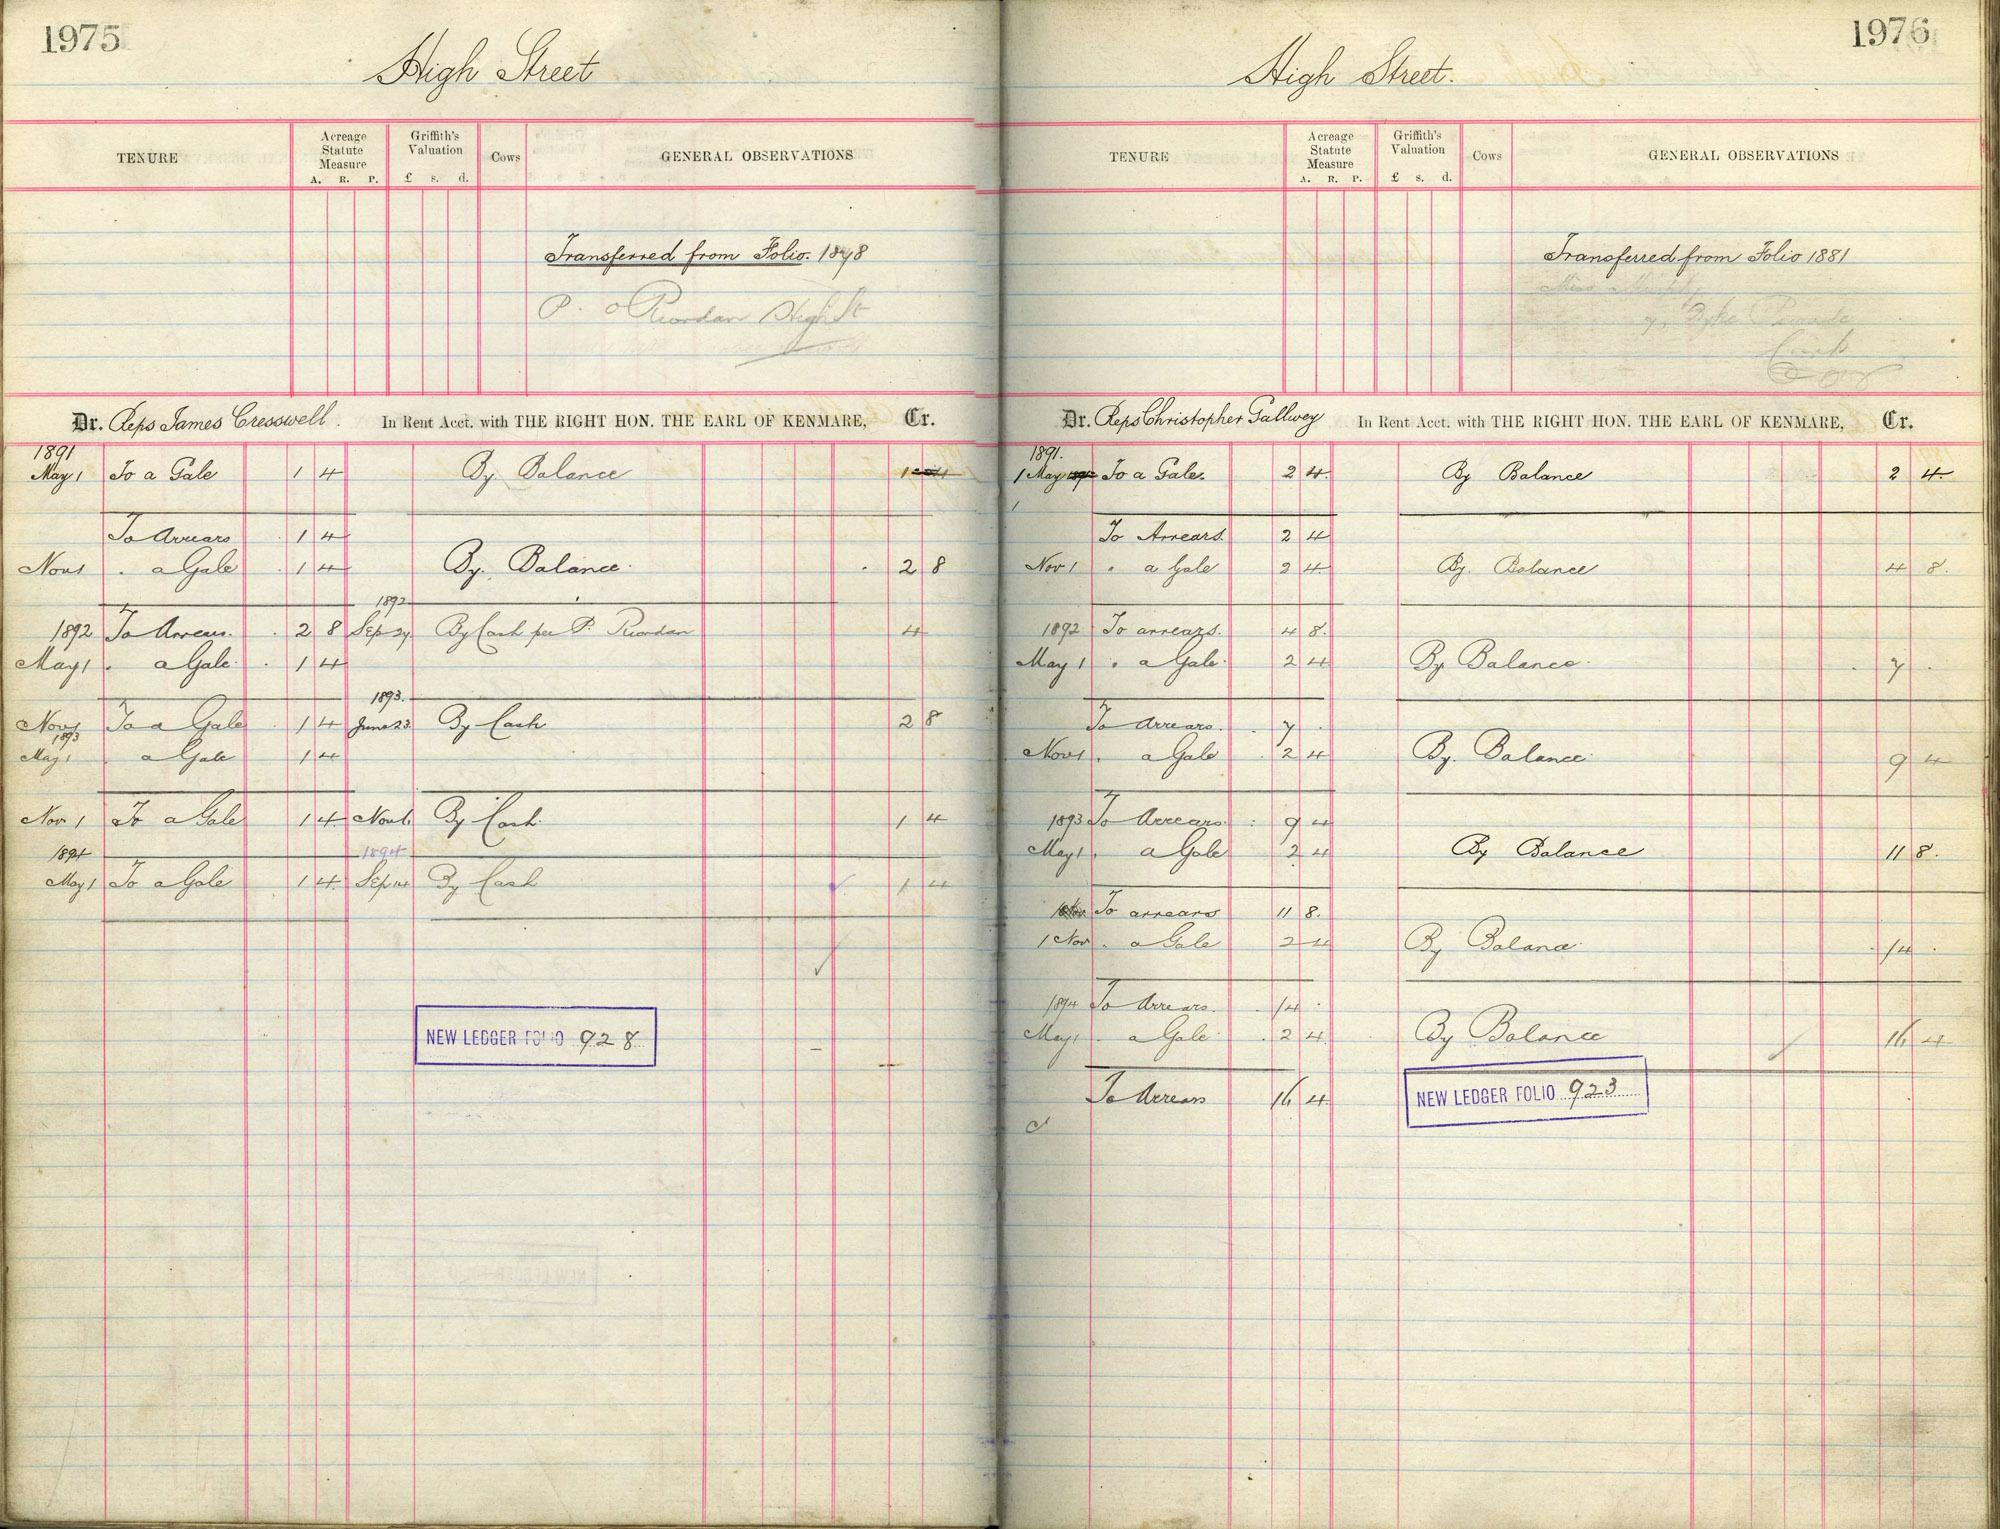 1975
High Street
TENURE
Acreage Statute Measure
A. R. P.
Griffith's Valuation
£ s. d.
Cows
GENERAL OBSERVATIONS
Transferred from Folio. 1878
P. O Riordan High St
Dr. Reps James Cresswell. In Rent Acct. with THE RIGHT HON. THE EARL OF KENMARE, Cr.
1891
May 1 To a Gale 1 4 By Balance 1 4
To Arrears 1 4
Nov 1 " a Gale 1 4 By Balance 2 8
1892
1892 To Arrears. 2 8 Sep 24 By Cash per P. Riordan 4
May 1 " a Gale 1 4
1893.
Nov 1 To a Gale 1 4 June 23 By Cash 2 8
1893
May 1 a Gale 1 4
Nov 1 To a Gale 1 4 Nov 1 By Cash 1 4
1894 1894
May 1 To a Gale 1 4 Sep 14 By Cash 1 4
NEW LEDGER FOLIO 928
1976
High Street.
TENURE
Acreage Statute Measure
A. R. P.
Griffith's Valuation
£ s. d.
Cows
GENERAL OBSERVATIONS
Transferred from Folio 1881
Miss Murphy
7, Dyke Parade
Cork
Dr. Reps Christopher Gallwey In Rent Acct. with THE RIGHT HON. THE EARL OF KENMARE, Cr.
1891.
1 May To a Gale. 2 4 By Balance 2 4
To Arrears. 2 4
Nov 1 " a Gale 2 4 By Balance 4 8.
1892 To arrears. 4 8.
May 1 " a Gale 2 4 By Balance 7
To Arrears. 7
Nov 1 " a Gale 2 4 By. Balance 9 4
1893 To Arrears 9 4
May 1 " a Gale 2 4 By Balance 11 8.
To arrears 11 8.
1 Nov " a Gale 2 4 By Balance 14
1894 To Arrears. 14
May 1 " a Gale 2 4 By Balance 16 4
To Arrears 16 4
NEW LEDGER FOLIO 923